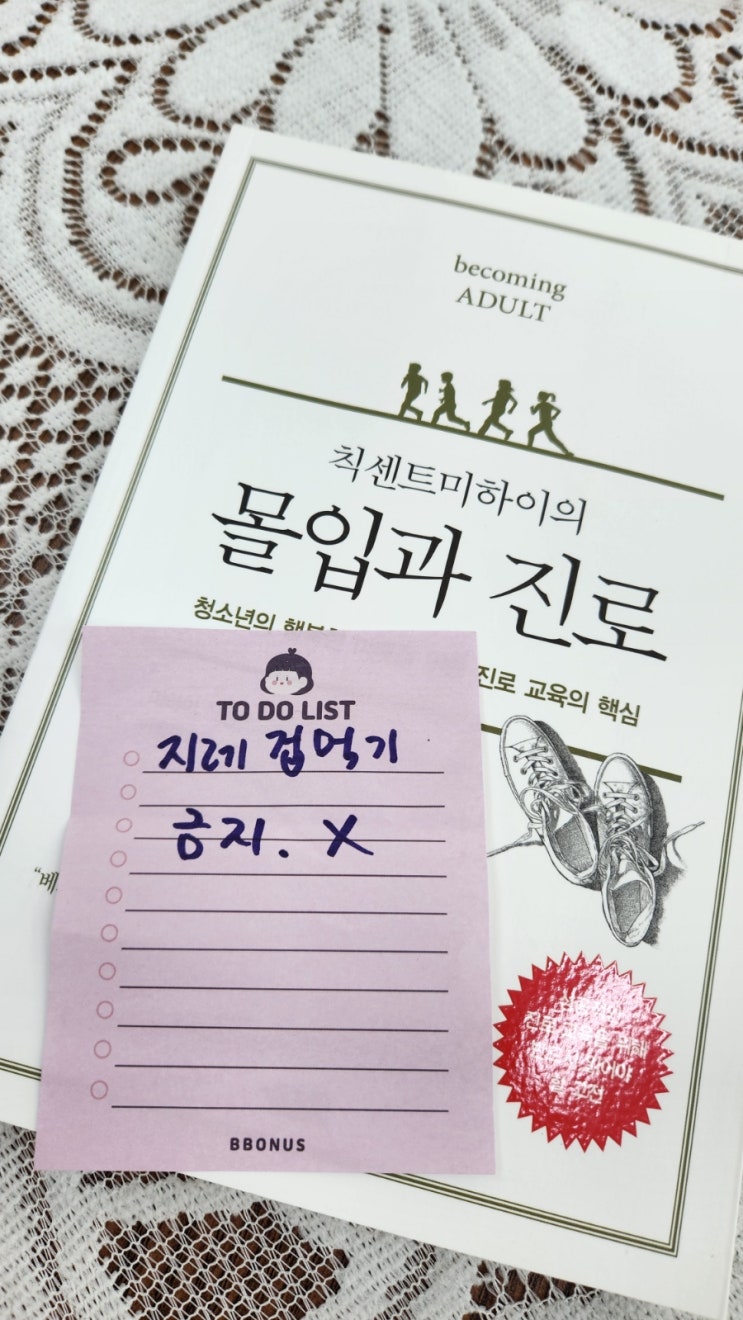 becoming
ADULT
칙센트미하이의
몰입과 진로
청소년의 행복
진로 교육의 핵심
TO DO LIST
지레 겁먹기
금지. X
BBONUS